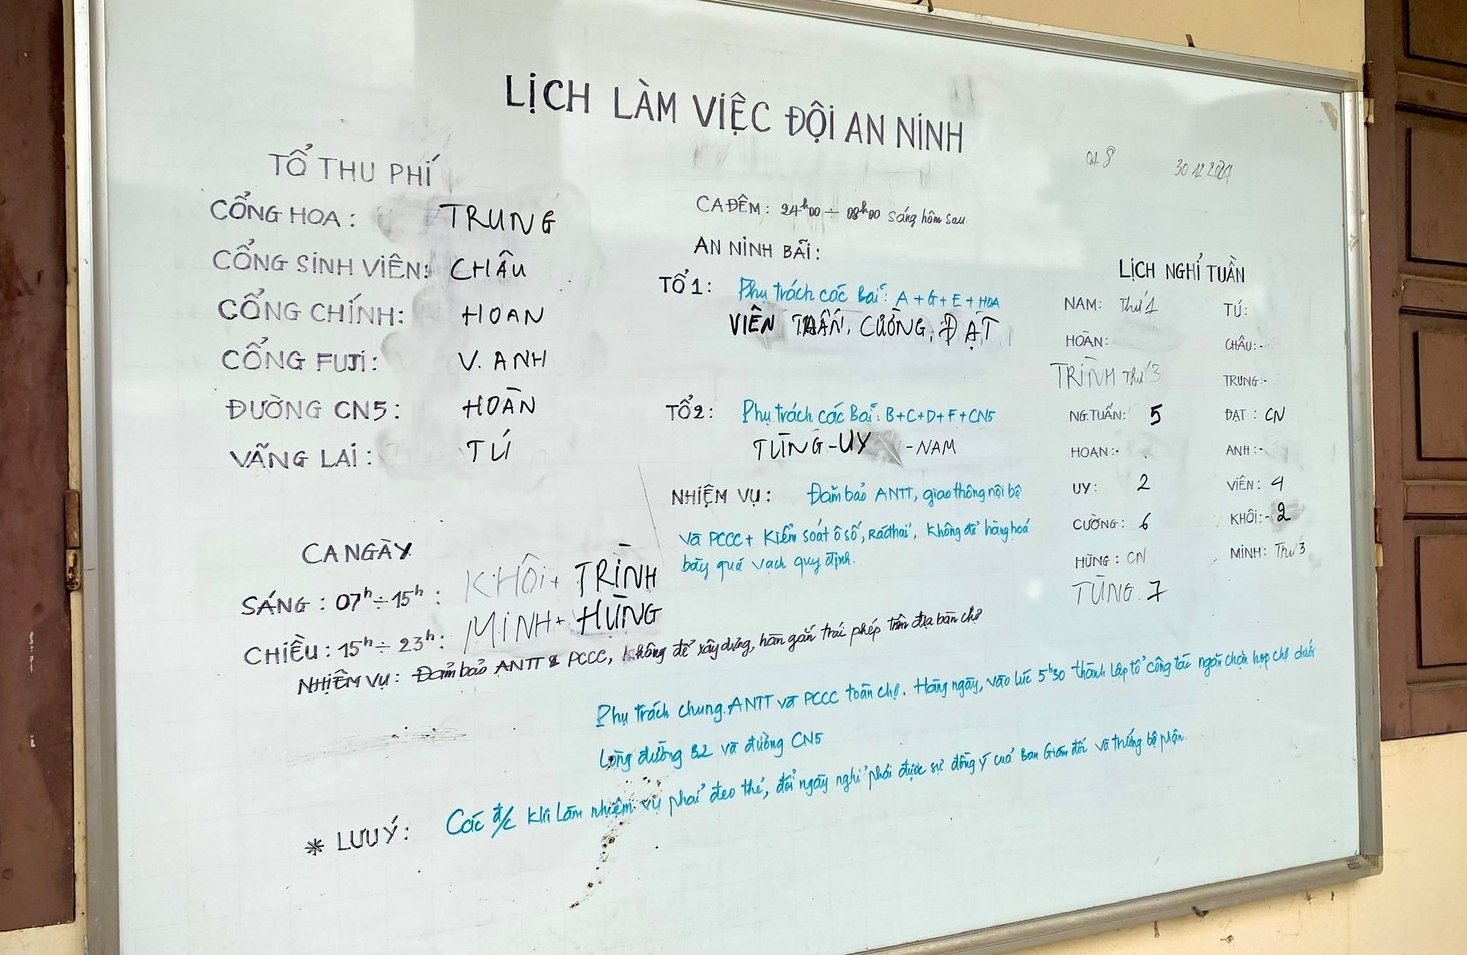 LỊCH LÀM VIỆC ĐỘI AN NINH
30.12.2024
TỔ THU PHÍ
CỔNG HOA: TRUNG
CỔNG SINH VIÊN: CHÂU
CỔNG CHÍNH: HOAN
CỔNG FUJI: V. ANH
ĐƯỜNG CN5: HOÀN
VÃNG LAI: TÚ
CA NGÀY
SÁNG: 07h÷15h: KHÔI+ TRÌNH
CHIỀU: 15h÷ 23h: MINH+ HÙNG
NHIỆM VỤ: Đảm bảo ANTT & PCCC, không để xây dựng, hàn gắn trái phép trên địa bàn chợ
CA ĐÊM: 24h00 ÷ 08h00 sáng hôm sau
AN NINH BÃI:
TỔ 1: Phụ trách các Bãi: A+G+E+HOA
VIÊN TUẤN, CƯỜNG, ĐẠT
TỔ 2: Phụ trách các Bãi: B+C+D+F+CN5
TÙNG-UY -NAM
NHIỆM VỤ: Đảm bảo ANTT, giao thông nội bộ
và PCCC+ Kiểm soát ô số, Rác thải, không để hàng hoá
bày quá vạch quy định.
LỊCH NGHỈ TUẦN
NAM: Thứ 4 TÚ:
HOÀN: CHÂU:-
TRÌNH Thứ 3 TRUNG:-
NG.TUẤN: 5 ĐẠT: CN
HOAN:- ANH:-
UY: 2 VIÊN: 4
CƯỜNG: 6 KHÔI:- 2
HÙNG: CN MINH: Thứ 3
TÙNG. 7
Phụ trách chung ANTT và PCCC toàn chợ. Hàng ngày, vào lúc 5h30 thành lập tổ công tác ngăn chặn họp chợ dưới
lòng đường B2 và đường CN5
* LƯU Ý: Các đ/c khi làm nhiệm vụ phải đeo thẻ, đổi ngày nghỉ phải được sự đồng ý của Ban Giám đốc và trưởng bộ phận.